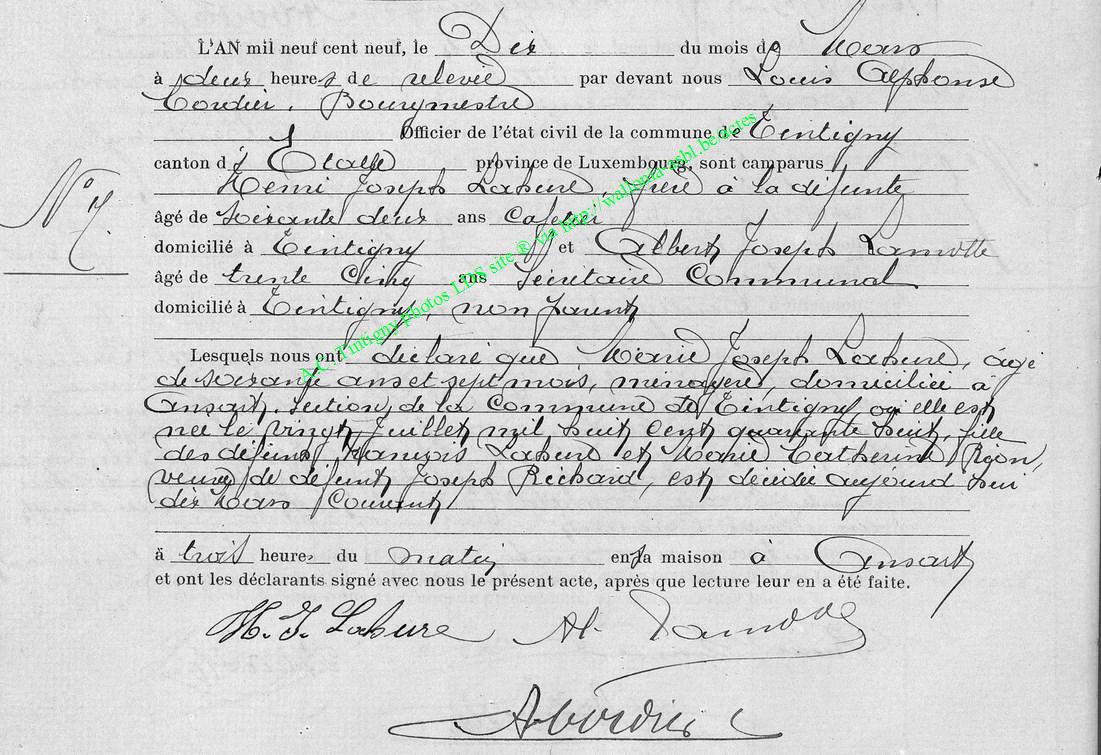 L'AN mil neuf cent neuf, le Dix du mois de Mars
à deux heures de relevée par devant nous Louis Alphonse
Cordier, Bourgmestre
Officier de l'état civil de la commune de Tintigny
canton d' Etalle province de Luxembourg, sont comparus
Henri Joseph Lahure, frère à la défunte
âgé de soixante deux ans Cafetier
domicilié à Tintigny et Albert Joseph Lamotte
âgé de trente Cinq ans Secrétaire Communal
domicilié à Tintigny, non parent
Lesquels nous ont déclaré que Marie Joseph Lahure, âgé
de soixante ans et sept mois, ménagère, domiciliée à
Ansart, section de la Commune de Tintigny, où elle est
née le vingt Juillet mil huit cent quarante huit, fille
des défunts François Lahure et Marie Catherine
veuve de défunt Joseph Richard, est décédée aujourd'hui
dix Mars Courant
à trois heures du matin en sa maison à Ansart
et ont les déclarants signé avec nous le présent acte, après que lecture leur en a été faite.
H. J. Lahure Al. Lamotte
ACordier
N° 7.
A.C. Tintigny photos LDS site ® via http://wallonia-asbl.be.actes